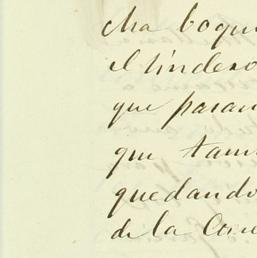 cha boqui
el lindero
que pasan
que tam
quedando
de la Con